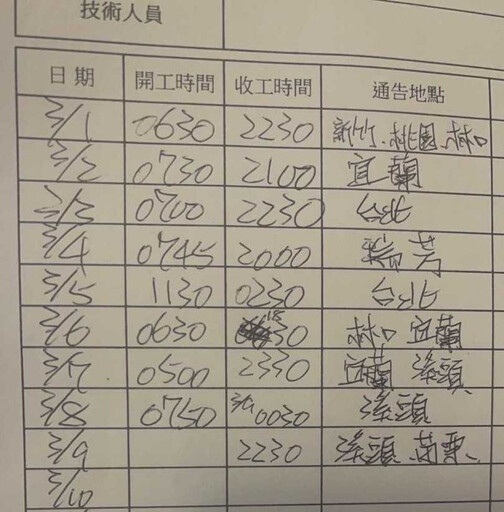 技術人員
日期 開工時間 收工時間 通告地點
3/1 0630 2230 新竹、桃園、林口
3/2 0730 2100 宜蘭
3/3 0700 2230 台北
3/4 0745 2000 瑞芳
3/5 1130 0230 台北
3/6 0630 1830 林口 宜蘭
3/7 0500 2330 宜蘭 溪頭
3/8 0750 3/9 0030 溪頭
3/9 2230 溪頭、苗栗
3/10